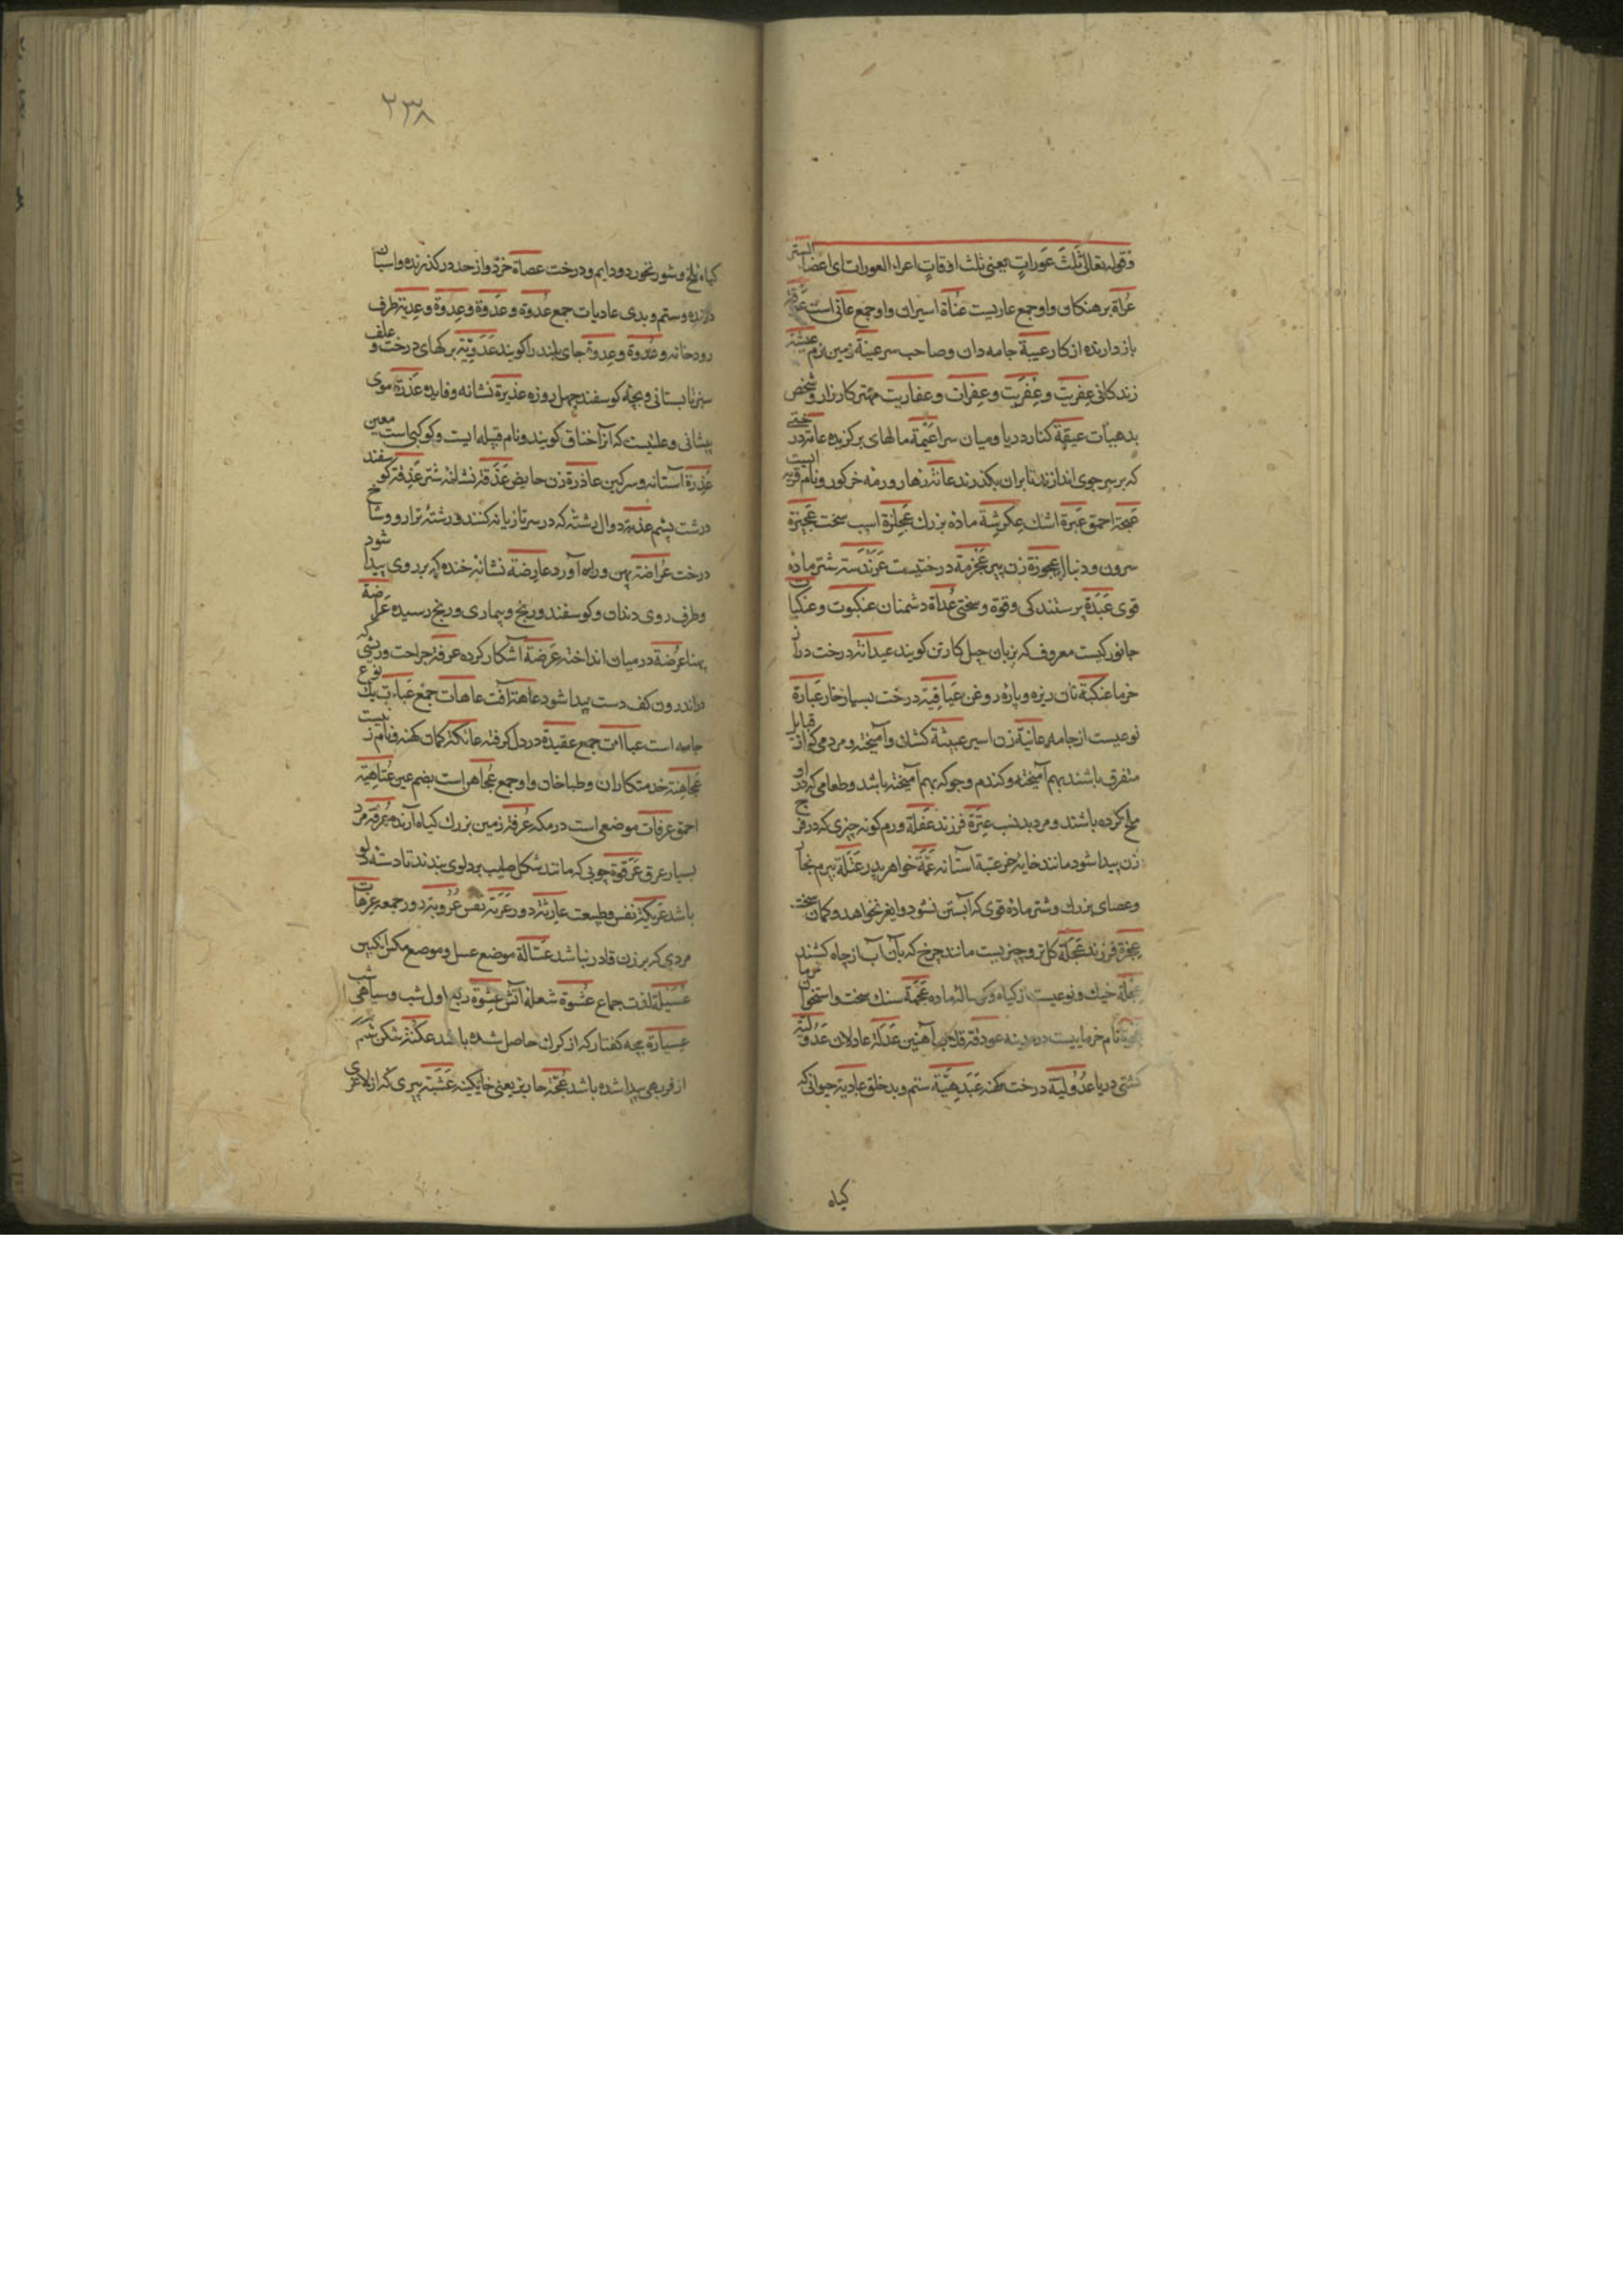 وقوله تعالی ثَلٰثَ عَوراتٍ یعنی ثلث اوقاتٍ اعراء العورات ای اعضا الستر
عُراة برهنکان واو جمع عاریست عُناة اسیران واو جمع عانی است
باز دارنده از کار عیبة جامه دان وصاحب سر عینة زمین نرم عیشة
زندکانی عِفریت وعِفریت وعِفرات وعفاریت مهتر کارزار وشخص
بدهیأت عیقة کنار دریا ومیان سرا عَیمة مالهای برکزیده عامة در
که بر سر جوی اندازند تا بران بکذرند عانة زهار ورمه خرکور ونام قریه ایست
احمق عَبرة اشك عِکرِشة ماده بزرك عَجلزة اسپ سخت عَجیزة
سرون ودنبال عجوزة زن پیر عَجْرمة درختیست عَرَندَسة شتر مادۀ
قوی عَبَدة پرستندکی وقوة وسختی عُداة دشمنان عنکبوت وعنکبات
جانورکیست معروف که بزبان جیل کارتن کویند عیدانة درخت دراز
خرما عنکبة نان ریزه وپارۀ روغن عَباقیة درخت بسیار خار عَبارة
نوعیست از جامه عانیة زن اسیر عبیثة کشان وآمیخته ومردمی که از قبایل
متفرق باشند بهم آمیخته وکندم وجو که بهم آمیخته باشد وطعامی که درو
ملخ کرده باشند ومرد بدنسب عِترَة فرزند عَفَلة ورم کونه چیزی که در فرج
زن پیدا شود مانند خایۀ خر عتبة آستانه عَمّة خواهر پدر عَتَلة بیرم نجار
وعصای بزرك وشتر مادۀ قوی که آبستن نشود وایغر نخواهد وکمان سخت
عِجزة فرزند عَجَلة کل تر وچیزیست مانند چرخ که بآن آب از چاه کشند
خیك ونوعیست از کیاه وکوسالۀ ماده عَجَمة سنك سخت واستخوان خرما
نام خرماییست در مدینه عودقة قلاب آهنین عَدَلة عادلان عَدَولیة
کشتی دریا عُدُولیة درخت کهنه عَبَدِهیّة ستم وبد خلق عادیة حیوانی که
کیاه
۲۳۸
کیاه تلخ وشور نخورد ودایم ودرخت عصاة خرد واز حد در کذرنده واسبان
دونده وستم وبدی عادیات جمع عُدوة وعَدوة وعِدوة وعِدیة طرف
رودخانه وعُدوة وعِدوة جای بلند را کویند عَدَویّة برکهای درخت وعلف
سبز تابستانی وبچۀ کوسفند چهل روزه عذیرة نشانه وفایده عُذرَة موی
پیشانی وعلتیست که آنرا خناق کویند ونام قبیله ایست وکوکبی است معین
عَذِرة آستانه وسرکین عاذرة زن حایض عَذقة نشانۀ شتر عَذِقة کوسفند
درشت پشم عذبة دوال رشته که در سر تازیانه کنند ورشتۀ ترازو وشاخ
درخت عُراضة پهن وراه آورد عارِضة نشانۀ خنده که بر روی پیدا شود
وطرف روی دندان وکوسفند وریخ وبیماری ورنج رسیده عَراضة
پهنا عُرضة در میان انداخته عَرَضة آشکار کرده عرفة جراحت وریشی که
در اندرون کف دست پیدا شود عاهة آفت عاهات جمع عَباءة نوع
جامه است عباات جمع عقیدة در دل کرفته عاتکة کمان کهنه ونام
عُجاهِنة خدمتکاران وطباخان واو جمع عُجاهن است بضم عین عُتاهِیة
احمق عرفات موضعی است در مکه عُرفة زمین بزرك کیاه آرنده عُرَقة مرد
بسیار عرق عَرقُوة چوبی که مانند شکل صلیب بر دلوی بندند تا دستۀ دلو
باشد عَریکة نفس وطبیعت عاربة دور عَرَبة نفس عُروبة روز جمعه
مردی که بر زن قادر نباشد عَسّالة موضع عسل وموضع مکس انکبین
عُسَیلة لذت جماع عُشوة شعلۀ آتش عِشوة ربع اول شب وسیاهی شب
عِسبارة بچه کفتار که از کرك حاصل شده باشد عُکنة شکن شکم
از فربهی پیدا شده باشد عُجّة خابریز یعنی خایکینه عَشَبة پیری که از لاغری